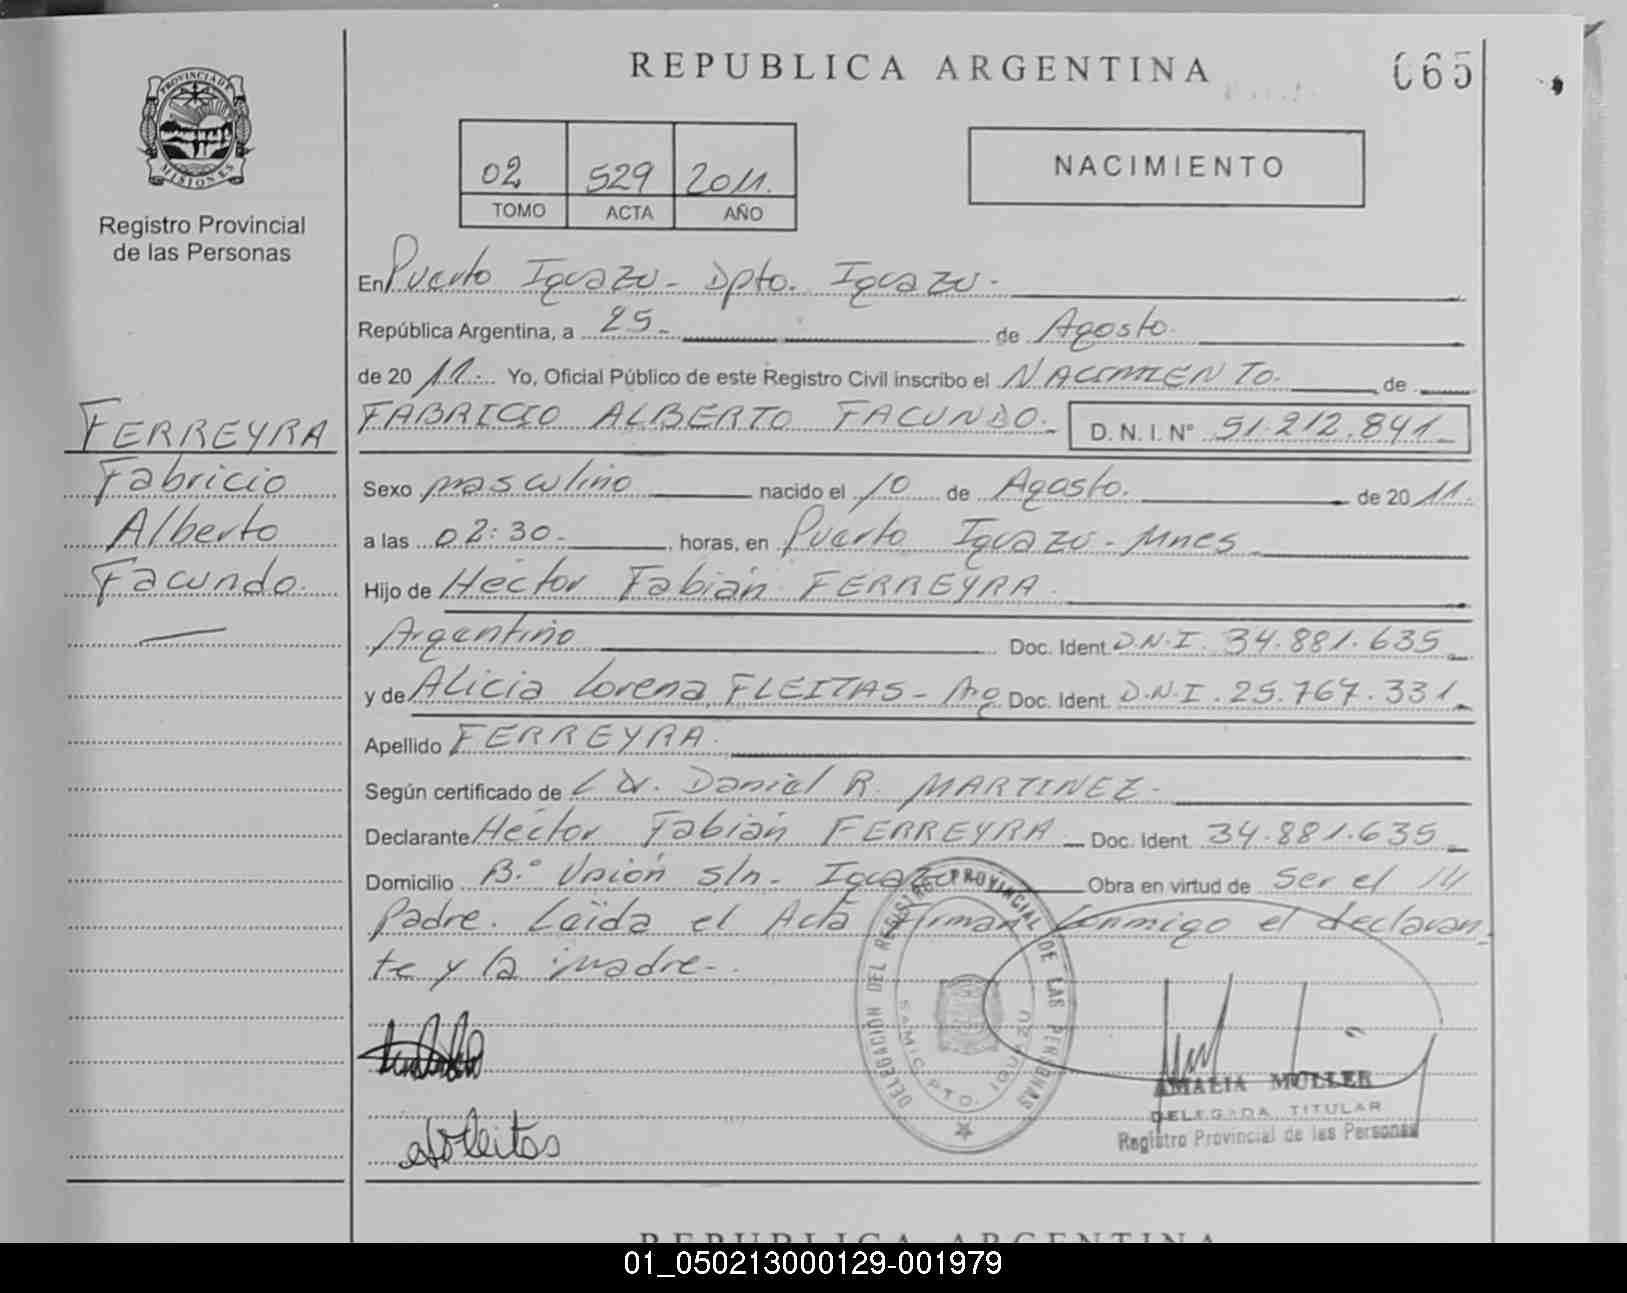 REPUBLICA ARGENTINA
065
PROVINCIA DE
MISIONES
Registro Provincial
de las Personas
02 529 2011.
TOMO ACTA AÑO
NACIMIENTO
En Puerto Iguazu - Dpto. Iguazu -
República Argentina, a 25 - de Agosto.
de 20 11. Yo, Oficial Público de este Registro Civil inscribo el NACIMIENTO. de
FABRICIO ALBERTO FACUNDO. D. N. I. Nº 51.212.841
FERREYRA
Fabricio
Alberto
Facundo.
Sexo masculino nacido el 10 de Agosto. de 20 11.
a las 02:30 - horas, en Puerto Iguazu - Mnes
Hijo de Héctor Fabián FERREYRA
Argentino Doc. Ident. D.N.I. 34.881.635
y de Alicia Lorena FLEITAS - Arg Doc. Ident. D.N.I. 25.767.331
Apellido FERREYRA
Según certificado de Dr. Daniel R. MARTINEZ -
Declarante Héctor Fabián FERREYRA Doc. Ident. 34.881.635
Domicilio B.º Unión s/n - Iguazu Obra en virtud de Ser el
Padre. Leída el Acta Firman conmigo el declaran-
te y la madre -
DELEGACIÓN DEL REGISTRO PROVINCIAL DE LAS PERSONAS
DPTO. IGUAZU
AMALIA MULLER
DELEGADA TITULAR
Registro Provincial de las Personas
REPUBLICA ARGENTINA
01_050213000129-001979